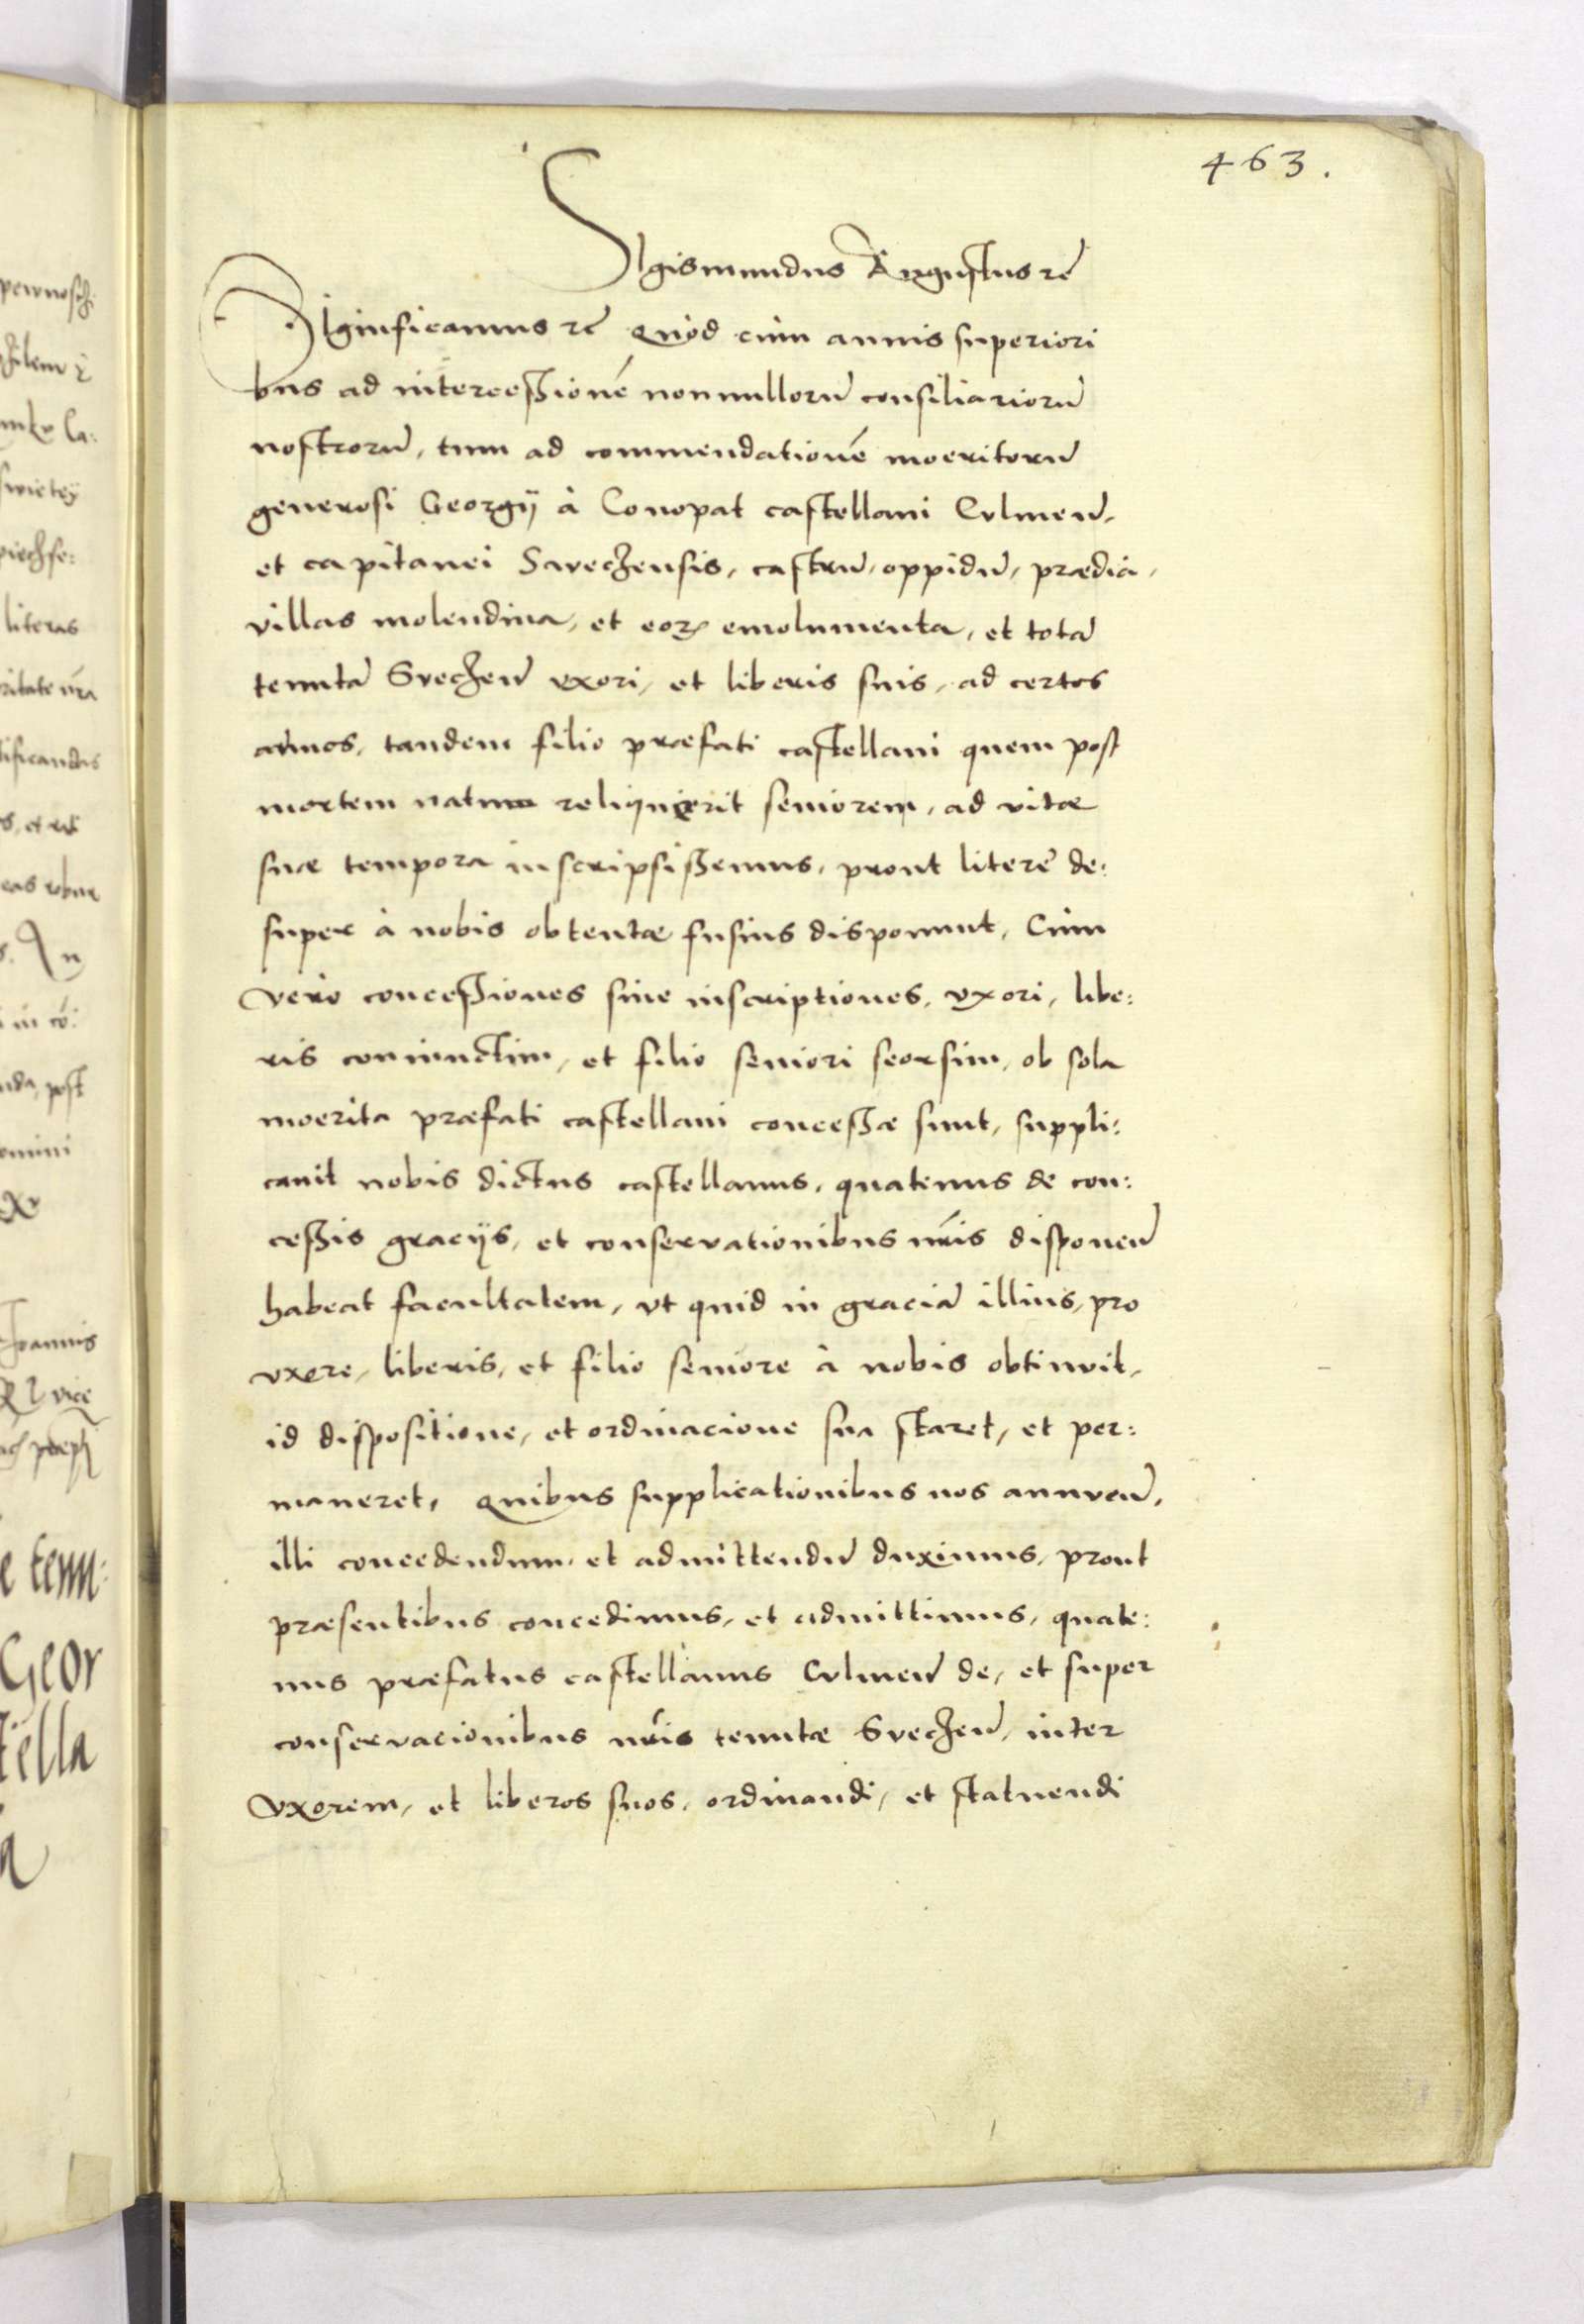 463.
Sigismundus Augustus rc̄
Significamus rc̄ Quòd cùm annis superiori
bus ad intercessionē nonnullorū consiliariorū
nostrorū, tum ad commendationē moeritorū
generosi Georgij à Conopat castellani Culmen̄,
et capitanei Swechensis, castrū, oppidū, prædia,
villas molendina, et eorꝝ emolumenta, et totā
tenutā Svechen̄ uxori, et liberis suis, ad certos
annos, tandem filio præfati castellani quem post
mortem natum reliquerit seniorem, ad vitæ
suæ tempora inscripsissemus, prout literę de:
super à nobis obtentæ fusius disponunt, Cùm
verò concessiones siue inscriptiones, uxori, libe:
ris coniunctim, et filio seniori seorsim, ob sola
moerita præfati castellani concessæ sunt, suppli:
cauit nobis dictus castellanus, quatenus de con:
cessis gracijs, et conservationibus nr̄is disponen̄
habeat facultatem, ut quid in graciā illius, pro
uxore, liberis, et filio seniore à nobis obtinuit,
id dispositione, et ordinacione sua staret, et per:
maneret, Quibus supplicationibus nos annuen̄,
illi concedendum, et admittendū duximus, prout
præsentibus concedimus, et admittimus, quate:
nus præfatus castellanus Culmen̄ de, et super
conservacionibus nr̄is tenutæ Svechen̄, inter
Uxorem, et liberos suos, ordinandi, et statuendi
literas
ificandas
post
Joannis
vice
Geor
tella